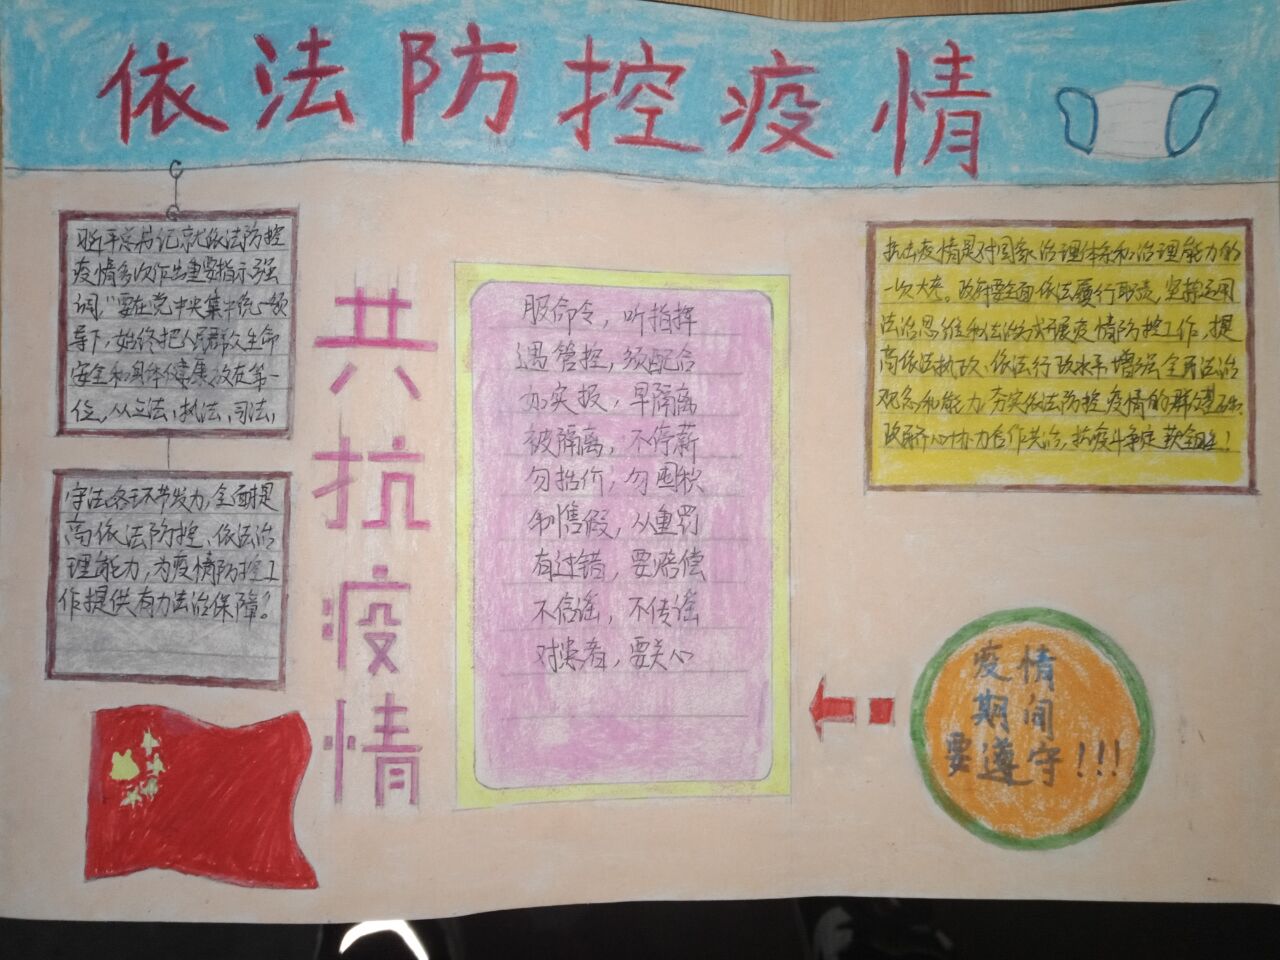 依法防控疫情
习近平总书记就依法防控
疫情多次作出重要指示强
调,“要在党中央集中统一领
导下,始终把人民群众生命
安全和身体健康放在第一
位,从立法、执法、司法、
守法各环节发力,全面提
高依法防控、依法治
理能力,为疫情防控工
作提供有力法治保障。
共抗疫情
服命令,听指挥
遇管控,须配合
如实报,早隔离
被隔离,不停薪
勿抬价,勿囤积
制售假,从重罚
有过错,要赔偿
不信谣,不传谣
对患者,要关心
抗击疫情是对国家治理体系和治理能力的
一次大考。政府要全面依法履行职责,坚持运用
法治思维和法治方式开展疫情防控工作,提
高依法执政、依法行政水平,增强全民法治
观念和能力,夯实依法防控疫情的群
政府齐心协力合作共治,抗疫斗争定获全胜!
疫情
期间
要遵守!!!